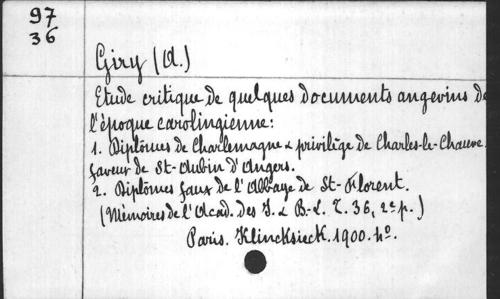 97
36
Giry (A.)
Etude critique de quelques documents angevins de
l'époque carolingienne:
1. Diplômes de Charlemagne & privilège de Charles-le-Chauve.
faveur de St-Aubin d'Angers.
2. Diplômes faux de l'Abbaye de St-Florent.
(Mémoires de l'Acad. des I. & B.-L. T. 36, 2e p.)
Paris. Klincksieck. 1900. 4o.